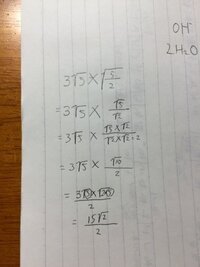 OH⁻
2H₂O
3√5 × √(5/2)
= 3√5 × √5/√2
= 3√5 × √5×√2/√2×√2=2
= 3√5 × √10/2
= 3√5×√2√5/2
= 15√2/2